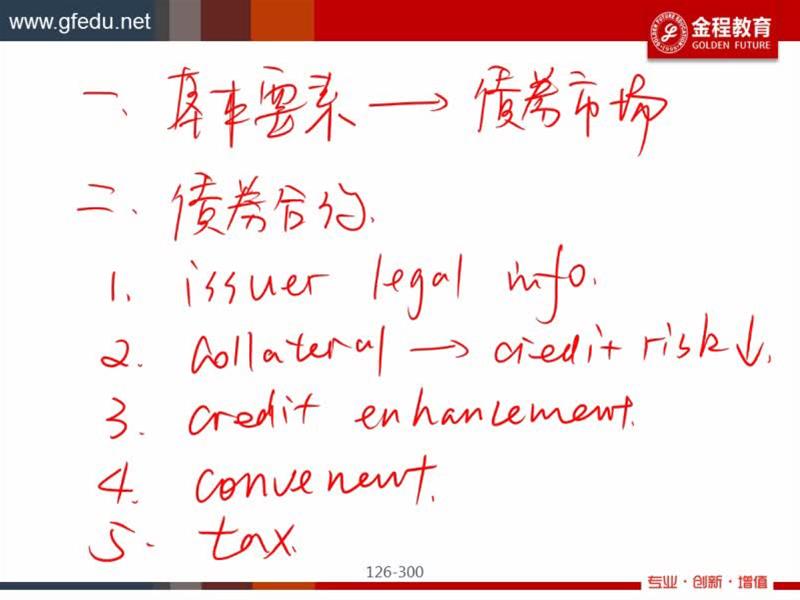 www.gfedu.net
金程教育
GOLDEN FUTURE
一、基本要素 → 债券市场
二、债券合约.
1. issuer legal info.
2. collateral → credit risk ↓.
3. credit enhancement.
4. convenent.
5. tax.
126-300
专业·创新·增值